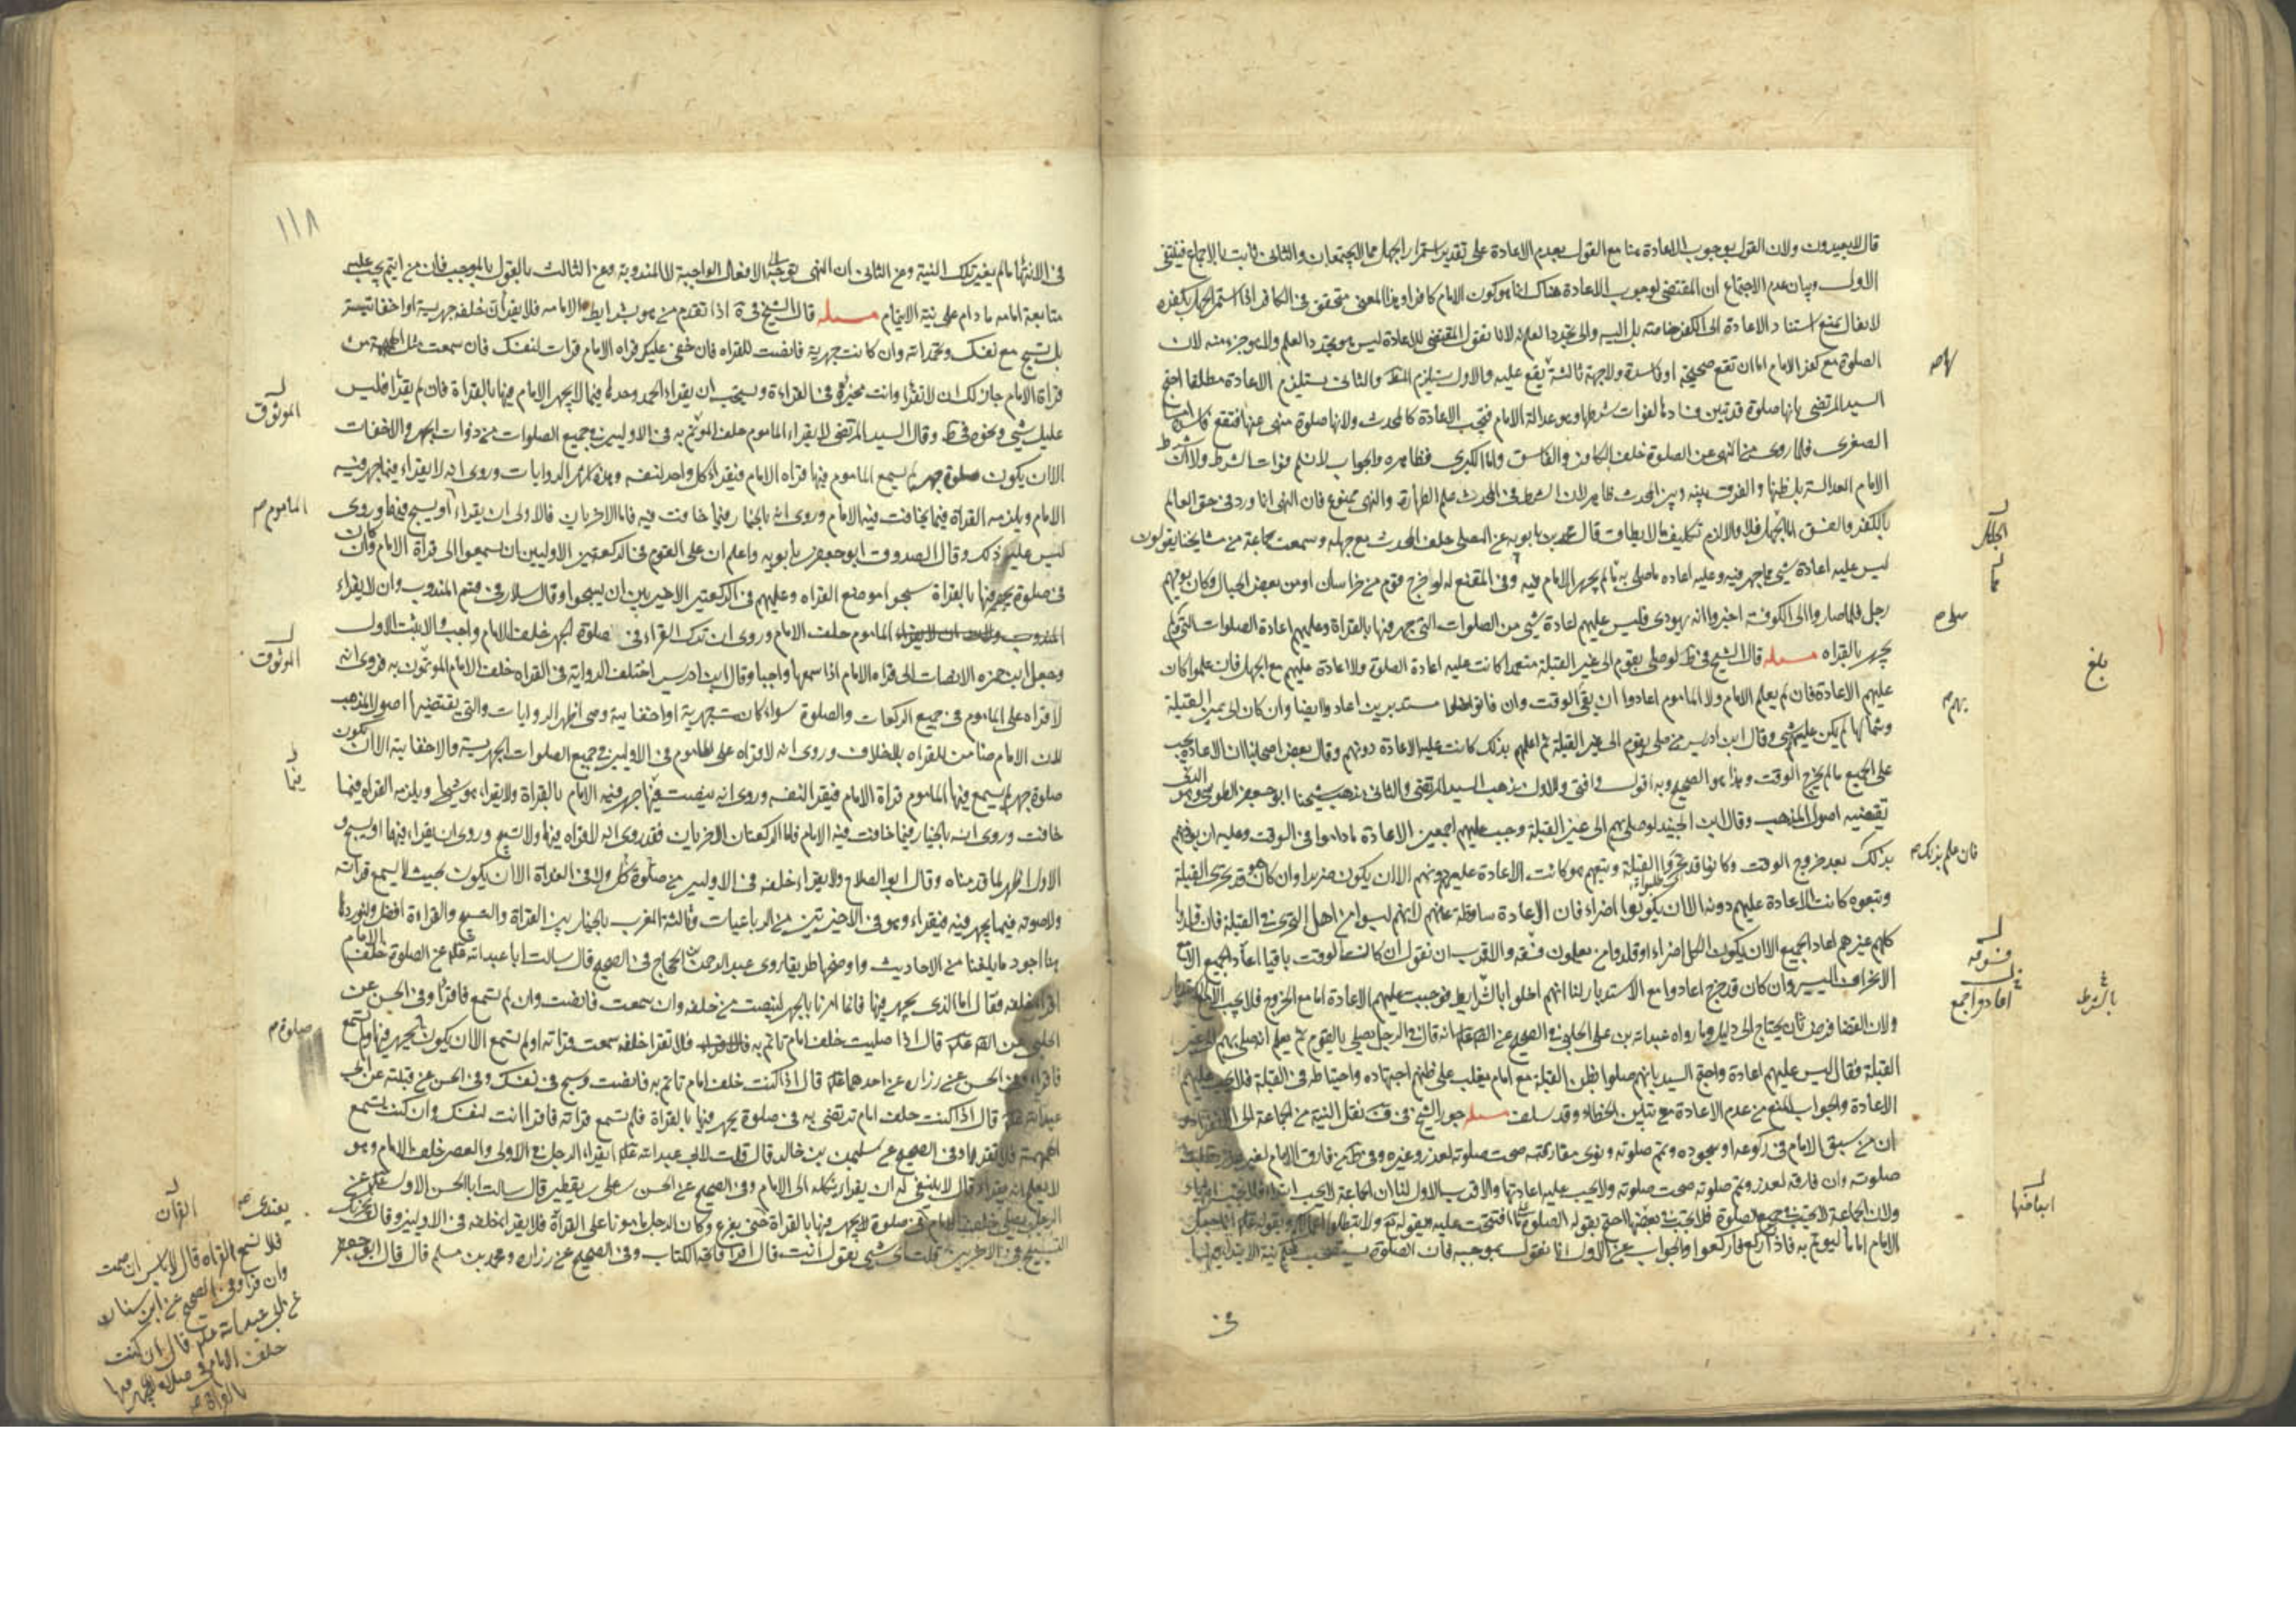 قال لا يعيدون ولان القول بوجوب الاعادة هنا مع القول بعدم الاعادة على تقدير استمرار الجهل مما لا يجتمعان والثاني ثابت بالاجماع فينتفى
الاول وبيان عدم الاجتماع ان المقتضى لوجوب الاعادة هناك انما هو كون الامام كافرا وهذا المعنى متحقق في الكافر اذا استمر الجهل بكفره
لا يقال نمنع استناد الاعادة الى الكفر خاصة بل اليه والى تجدد العلم به لانا نقول المقتضى للاعادة ليس هو تجدد العلم ولا هو جزء منه لان
الصلوة مع كفر الامام اما ان تقع صحيحة او فاسدة ولا جهة ثالثة يقع عليه والاول يستلزم المط والثاني يستلزم الاعادة مطلقا احتج
السيد المرتضى بانها صلوة قد تبين فسادها لفوات شرطها وهو عدالة الامام فتجب الاعادة كالمحدث ولانها صلوة منهى عنها فتقع فاسدة اما
الصغرى فلما روى من النهى عن الصلوة خلف الكافر والفاسق واما الكبرى فظاهره والجواب لا نسلم فوات الشرط ولا الشرط
الامام العدالة بل ظنها والفرق بينه وبين المحدث ظاهر لان الشرط في المحدث علم الطهارة والنهى ممنوع فان النهى انما ورد في حق العالم
بالكفر والفسق اما الجهل فلا والا لازم تكليف ما لا يطاق قال محمد بن بابويه عن المصلى خلف المحدث مع جهله وسمعت جماعة من مشايخنا يقولون
ليس عليه اعادة شئ مما جهر فيه وعليه اعاده ما صلى به مما لم يجهر الامام فيه وفي المقنع له لو خرج قوم من خراسان او من بعض الجبال وكان يؤمهم
رجل فلما صاروا الى الكوفة اخبروا انه يهودى فليس عليهم اعادة شئ من الصلوات التي جهر فيها بالقراة وعليهم اعادة الصلوات التي لم
يجهر بالقراه مسله قال الشيخ في ط لو صلى بقوم الى غير القبلة متعمدا كانت عليه اعادة الصلوة ولا اعادة عليهم مع الجهل فان علموا كان
عليهم الاعادة فان لم يعلم الامام ولا الماموم اعادوا ان بقى الوقت وان فات وصلوا مستدبرين اعادوا ايضا وان كان الى يمين القبلة
وشمالها لم يكن عليهم شئ وقال ابن ادريس من صلى بقوم الى غير القبلة ثم اعلمهم بذلك كانت عليه الاعادة دونهم وقال بعض اصحابنا ان الاعادة تجب
على الجميع ما لم يخرج الوقت وهذا هو الصحيح وبه اقول وافتى والاول مذهب السيد المرتضى والثاني مذهب شيخنا ابو جعفر الطوسى وهو الذى
تقتضيه اصول المذهب وقال ابن الجنيد لو صلى بهم الى غير القبلة وجب عليهم اجمعين الاعادة ما داموا في الوقت وعليه ان يؤذنهم
بذلك بعد خروج الوقت وكانوا قد تحروا القبلة وتبعهم هو كانت الاعادة عليه دونهم الا ان يكون ضريرا وان كان هو قد تحرى القبلة
وتبعوه كانت الاعادة عليهم دونه الا ان يكونوا اضراء فان الاعادة ساقطة عنهم لانهم ليسوا من اهل التحرى في القبلة فان قلدوا
كلهم غيرهم اعاد الجميع الا ان يكون الكل اضراء او قلدوا من يعلمون فسقه والاقرب ان نقول ان كان الوقت باقيا اعاد الجميع الا مع
الانحراف اليسير وان كان قد خرج اعادوا مع الاستدبار لنا انهم اخلوا بالشرايط فوجبت عليهم الاعادة اما مع الخروج فلا يجب
ولان القضا فرض ثان يحتاج الى دليل وما رواه عبيدالله بن على الحلبى في الصحيح عن الصادق انه قال في الرجل يصلى بالقوم ثم يعلم انه صلى بهم الى غير
القبلة فقال ليس عليهم اعادة واحتج السيد بانهم صلوا بظن القبلة مع امام يغلب على ظنهم اجتهاده واحتياطه في القبلة فلا يجب عليهم
الاعادة والجواب المنع من عدم الاعادة مع تبين الخطاء وقد سلف مسله جوز الشيخ في ف نقل النية من الجماعة الى الانفراد و
ان من سبق الامام في ركوعه او سجوده وتمم صلوته ونوى مفارقته صحت صلوته لعذر وغيره وفي ط من فارق الامام لغير عذر بطلت
صلوته وان فارقه لعذر وتمم صلوته صحت صلوته ولا يجب عليه اعادتها والاقرب الاول لنا ان الجماعة لا تجب ابتداء فلا تجب انتهاء
ولان الجماعة لا تجب في جميع الصلوة فلا تجب في بعضها احتج بقوله الصلوة على ما افتتحت عليه وبقوله تع ولا تبطلوا اعمالكم وبقوله انما جعل
الامام اماما ليؤتم به فاذا ركع فاركعوا والجواب عن الاول انا نقول بموجبه فان الصلوة يستصحب حكم نية الابتداء فيها
في
بلغ
فان علم بذلك
اعادوا اجمع
بالشرط
ابعاضها
١١٨
في الانتها ما لم يغير تلك النية وعن الثاني ان النهى توجه الى الافعال الواجبة لا المندوبة وعن الثالث بالقول بالموجب فان من ايتم يجب عليه
متابعة امامه ما دام على نية الايتمام مسله قال الشيخ في ية اذا تقدم من هو بشرايط الامامه فلا يقرأن خلفه جهرية او اخفاتية
بل تسبح مع نفسك وتحمد الله وان كانت جهرية فانصت للقراه فان خفى عليك قراه الامام قرات لنفسك فان سمعت مثل الهمهمة من
قراة الامام جاز لك ان لا تقرا وانت مخير في القراءة ويستحب ان يقراء الحمد وحدها فيما لا يجهر الامام فيها بالقراة فان لم يقرا فليس
عليك شئ ونحوه في ط وقال السيد المرتضى لا يقراء الماموم خلف المؤتم به في الاوليين في جميع الصلوات من ذوات الجهر والاخفات
الا ان يكون صلوة جهر لم يسمع الماموم فيها قراه الامام فيقراء كل واحد لنفسه وهذه اشهر الروايات وروى انه لا يقراء فيما جهر فيه
الامام ويلزمه القراة فيما يخافت فيه الامام وروى انه بالخيار فيما خافت فيه فاما الاخريان فالاولى ان يقراء او يسبح فيهما وروى
ليس عليه ذلك وقال الصدوق ابو جعفر بن بابويه واعلم ان على القوم في الركعتين الاوليين ان يسمعوا الى قراة الامام وان كان
في صلوة لا يجهر فيها بالقراة سبحوا موضع القراه وعليهم في الركعتين الاخيرتين ان يسبحوا وقال سلار في قسم المندوب وان لا يقراء
الماموم خلف الامام وروى ان ترك القراءة في صلوة الجهر خلف الامام واجب والاثبت الاول
وجعل ابن حمزه الانصات الى قراه الامام اذا سمعها واجبا وقال ابن ادريس اختلف الرواية في القراه خلف الامام الموثوق به فروى انه
لا قراه على الماموم في جميع الركعات والصلوة سواء كانت جهرية او اخفاتية وهى اظهر الروايات والتي يقتضيها اصول المذهب
لان الامام ضامن للقراه بلا خلاف وروى انه لا قراه على الماموم في الاوليين في جميع الصلوات الجهرية والاخفاتية الا ان تكون
صلوة جهر لم يسمع فيها الماموم قراة الامام فيقرا لنفسه وروى انه ينصت فيما جهر فيه الامام بالقراة ولا يقراء هو شيئا ويلزمه القراه فيما
خافت وروى انه بالخيار فيما خافت فيه الامام فاما الركعتان الاخريان فقد روى انه لا قراه فيهما ولا تسبيح وروى ان يقراء فيهما او يسبح و
الاول اظهر لما قدمناه وقال ابو الصلاح ولا يقراء خلفه في الاوليين من كل صلوة ولا في الغداة الا ان يكون بحيث لا يسمع قرائته
ولا صوته فيما يجهر فيه فيقراء وهو في الاخيرتين من الرباعيات وثالثة المغرب بالخيار بين القراة والتسبيح والقراءة افضل ولنورد
هنا اجود ما بلغنا من الاحاديث واوضحها طريقا روى عبد الرحمن بن الحجاج في الصحيح قال سالت ابا عبدالله عن الصلوة خلف الامام
اقرا خلفه فقال اما الذى يجهر فيها فانما امرنا بالجهر لينصت من خلفه وان سمعت فانصت وان لم تسمع فاقرا وفي الحسن عن
الحلبى عن قال اذا صليت خلف امام تاتم به فلا تقرا خلفه سمعت قراته او لم تسمع الا ان يكون يجهر فيها ولم تسمع
فاقراء وفي الحسن عن زراره عن احدهما قال اذا كنت خلف امام تاتم به فانصت وسبح في نفسك وفي الحسن عن قتيبة عن ابى
عبدالله قال اذا كنت خلف امام ترتضى به في صلوة يجهر فيها بالقراة فلم تسمع قراته فاقرا انت لنفسك وان كنت تسمع
الهمهمة فلا تقرا وفي الصحيح عن سليمن بن خالد قال قلت لابى عبدالله ايقراء الرجل في الاولى والعصر خلف الامام وهو
لا يعلم انه يقراء فقال لا ينبغى له ان يقراء يكله الى الامام وفي الصحيح عن الحسن بن على بن يقطين قال سالت ابا الحسن الاول عن
الرجل يصلى خلف امام في صلوة لا يجهر فيها بالقراة حتى يفرغ وكان الرجل مامونا على القراة فلا يقراء خلفه في الاوليين وقال يجزيك
التسبيح في الاخريين قلت اى شئ تقول انت قال اقرا فاتحة الكتاب وفي الصحيح عن زراره ومحمد بن مسلم قال قال ابو جعفر
الموثوق
الماموم
الموثوق
فيما
صلوة
يقتدى
القرآن
فلا تسمع القراه قال لا باس ان صمت
وان قرا وفي الصحيح عن ابن سنان
عن ابى عبدالله قال ان كنت
خلف الامام في صلاة لا يجهر فيها
بالقراة